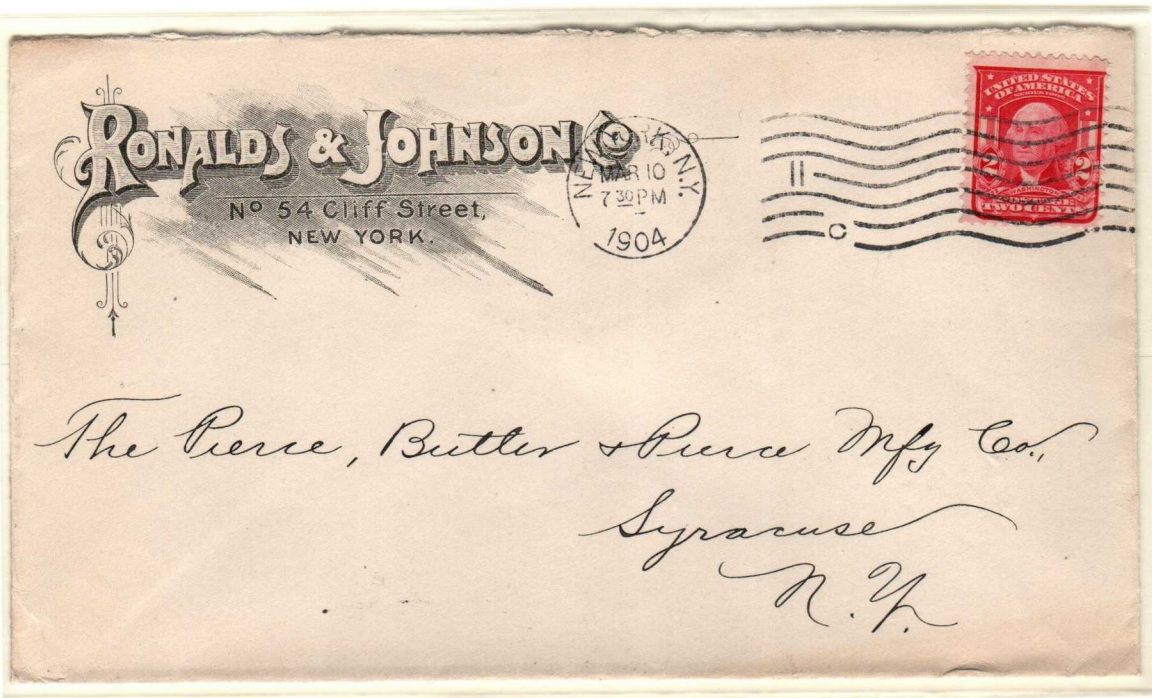 RONALDS & JOHNSON Co
No 54 Cliff Street,
NEW YORK.
NEW YORK, N.Y.
MAR 10
7 30 PM
1904
11
C
UNITED STATES
OF AMERICA
2 2
WASHINGTON
TWO CENTS
The Pierce, Butler & Pierce Mfg Co.,
Syracuse
N.Y.